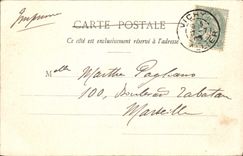 Imprimé
CARTE POSTALE
Ce côté est exclusivement réservé à l'adresse
VICHY
Melle Marthe Pagliano
100, Boulevard Rabatau
Marseille